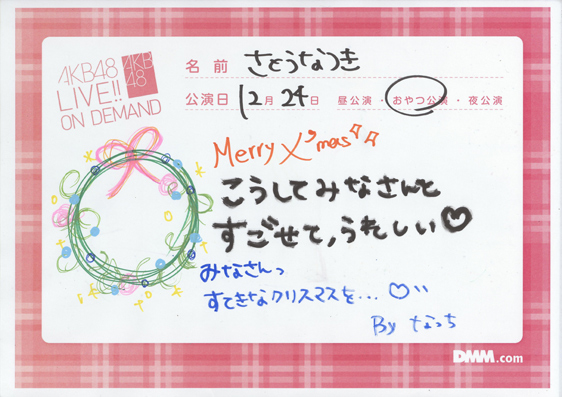 AKB48
LIVE!!
ON DEMAND
AKB
48
名 前 さとうなつき
公演日 12月 24日 昼公演・おやつ公演・夜公演
Merry X'mas
こうしてみなさんと
すごせて、うれしい♡
みなさんっ
すてきなクリスマスを...♡
By なっち
DMM.com